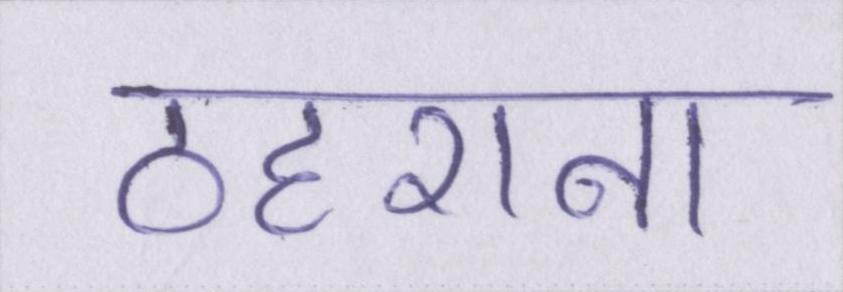 ठहराना